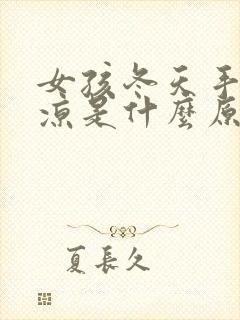 女孩冬天手
凉是什麼原
夏長久